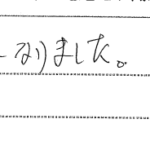 なりました。